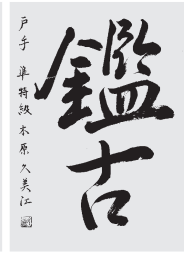 鑑古
戸手 準特級 木原久美江